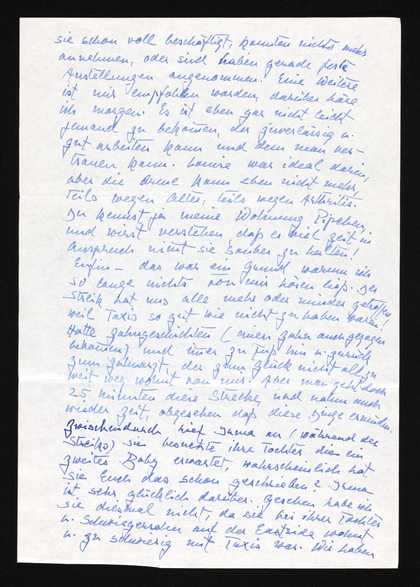 sie schon voll beschäftigt, konnten nichts mehr
annehmen, oder sind haben gerade feste
Anstellungen angenommen. Eine weitere
ist mir empfohlen worden, darüber höre
ich morgen. Es ist eben gar nicht leicht
jemand zu bekommen, der zuverlässig u.
gut arbeiten kann und dem man ver-
trauen kann. Louise war ideal darin,
aber die Arme kann eben nicht mehr,
teils wegen Alter, teils wegen Arthritis.
Du kennst ja meine Wohnung
und wirst verstehen daß es viel Zeit in
Anspruch nimmt sie sauber zu halten!
Enfin – das war ein Grund warum ich
so lange nichts von mir hören ließ. Der
Streik hat uns alle mehr oder minder getroffen
weil Taxis so gut wie nicht zu haben waren!
Hatte Zahngeschichten (einen Zahn auch gezogen
bekommen) und immer zu Fuß hin u. zurück
zum Zahnarzt, der zum Glück nicht allzu
weit weg wohnt von mir. Aber man geht doch
25 Minuten diese Strecke und nahm auch
wieder Zeit, abgesehen daß diese Dinge ermüden
Zwischendurch rief Irma an (während des
Streiks) sie besuchte ihre Tochter die ein
zweites Baby erwartet, wahrscheinlich hat
sie Euch das schon geschrieben? Irma
ist sehr glücklich darüber. Gesehen habe ich
sie diesmal nicht, da sie bei ihrer Tochter
u. Schwiegersohn auf der Eastside wohnt
u. zu schwierig mit Taxis war. Wir haben